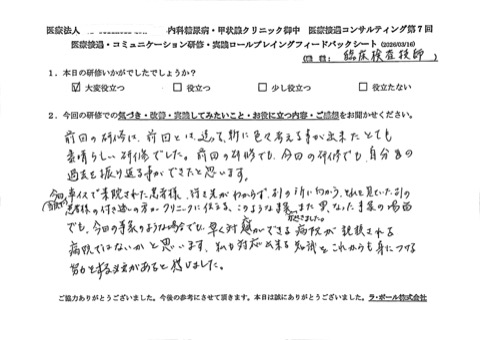 医療法人 内科糖尿病・甲状腺クリニック御中 医療接遇コンサルティング第7回
医療接遇・コミュニケーション研修・実践ロールプレイングフィードバックシート (2026/03/16)
(職種: 臨床検査技師)
1．本日の研修いかがでしたでしょうか？
☑ 大変役立つ □ 役立つ □ 少し役立つ □ 役立たない
2．今回の研修での気づき・改善・実践してみたいこと・お役に立つ内容・ご感想をお聞かせください。
前回の研修は、前回とは違って、新に色々考える事が出来たとても
素晴らしい研修でした。前回の研修でも、今回の研修でも、自分自の
過去を振り返る事ができたと思います。
今回 車イスで来院された患者様、行き先がわからず、別の所に向かう、それを見ていた別の
患者様の付き添いの方がクリニックに伝える、このような事、また、異なった事象の場面
でも、今回の事象のような場合でも、早く対応ができる病院が親放される
病院ではないかと思います、私も対応出来る知識をこれからも身につける
努力をする必要があると感じました。
ご協力ありがとうございました。今後の参考にさせて頂きます。本日は誠にありがとうございました。ラ・ポール株式会社